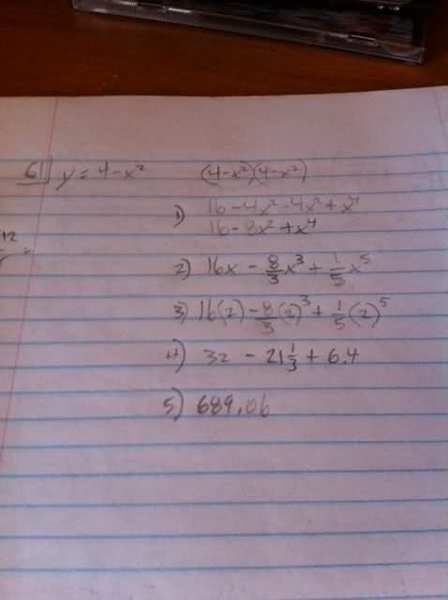 61 y = 4-x² (4-x²)(4-x²)
1) 16-4x²-4x²+x⁴
16-8x²+x⁴
+12
2) 16x - 8/3 x³ + 1/5 x⁵
3) 16(2) - 8/3 (2)³ + 1/5 (2)⁵
4) 32 - 21 1/3 + 6.4
5) 689.06